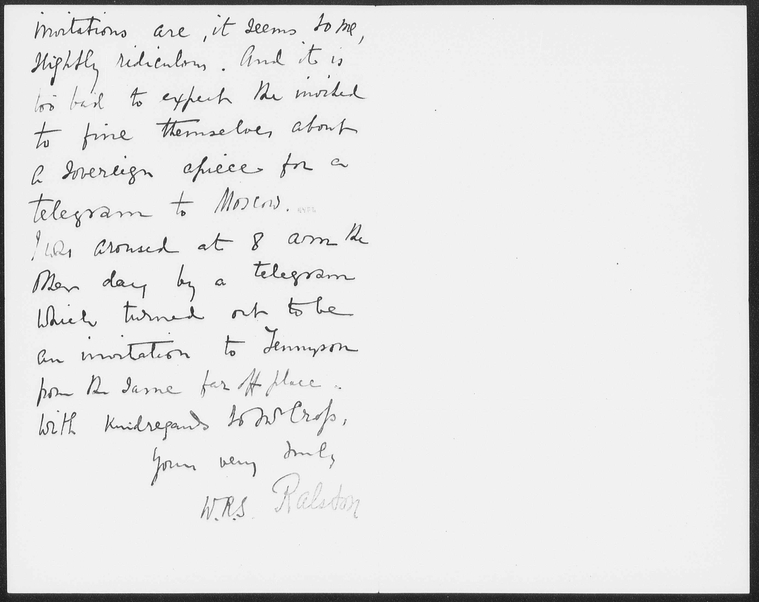 invitations are, it seems to me,
slightly ridiculous. And it is
too bad to expect the invited
to fine themselves about
a sovereign apiece for a
telegram to Moscow.
I was aroused at 8 am the
other day by a telegram
which turned out to be
an invitation to Tennyson
from the same far off place.
With kind regards to Mr Cross,
Yours very truly
W.R.S. Ralston